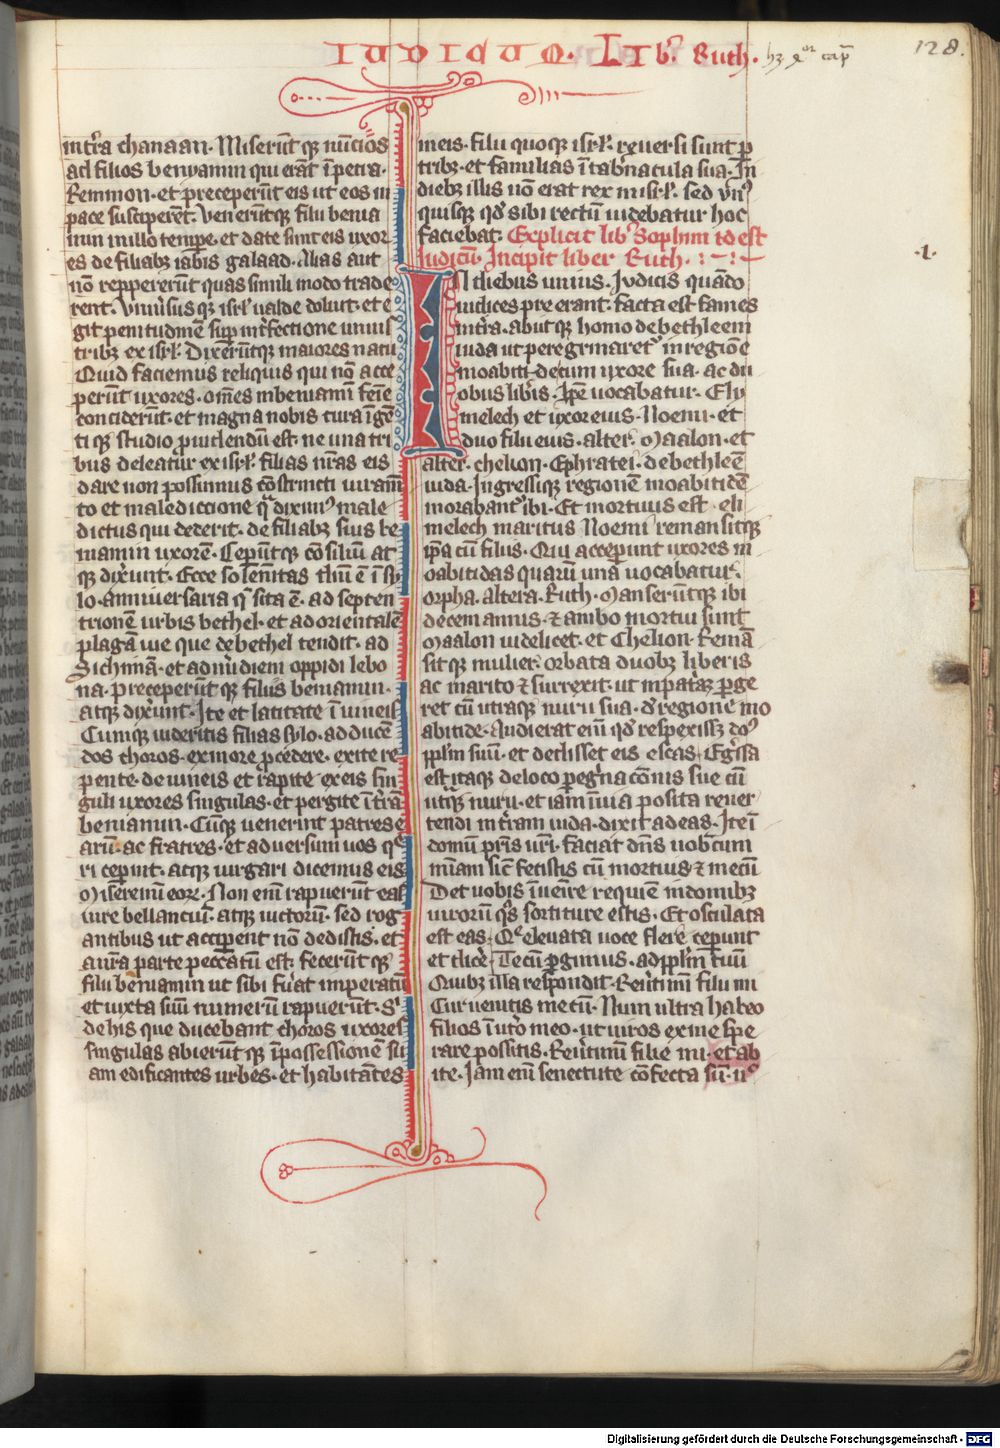 IUDICUM. LIb' Ruth. hȝ 4or cap̄
128.
int̄ra chanaan. Miserūt qꝫ nūcios
ad filios benyamin qui erāt ī petra.
Remmon. et preceperūt eis ut eos in
pace susciperēt. Venerūtqꝫ filii benia
min in illo temꝑe. et date sunt eis uxor
es de filiabꝫ iabis galaad. Alias aut̄
nō reppererūt quas simili modo trade
rent. Uniu'sus qꝫ isrl̄. ualde doluit. et e
git penitudinē suꝑ int̄fectione unius
tribꝫ ex isrl̄. Dixerūtqꝫ maiores natu
Quid faciemus reliquis qui nō acce
perūt uxores. om̄es in beniamī feīe
conciderūt. et magna nobis cura īgē
ti qꝫ studio ꝓuidendū est. ne una tri
bus deleatur ex isrl̄. filias nr̄as eis
dare non possumus cōstricti iuram̄
to et maledictione qͣ diximꝰ male
dictus qui dederit. de filiabꝫ suis be
niamin uxorē. Ceperūtqꝫ cōsiliū at
qꝫ dixerunt. Ecce solennitas dn̄i ē ī sy
lo. anniuersaria qͥ sita ē. ad septen
trionē urbis bethel. et ad orientalē
plagā uie que de bethel tendit. ad
Sichimā. et ad mīdiem oppidi lebo
na. preceperūt qꝫ filiis beniamin.
atqꝫ dixerunt. Ite et latitate ī uineis
Cumqꝫ uideritis filias sylo. ad ducē
dos choros. ex more ꝓcedere. exite re
pente. de uineis et rapite ex eis sin
guli uxores singulas. et pergite ī t̄rā
beniamin. Cūqꝫ uenerint patres e
arū. ac fratres. et aduersum uos qͤ
ri ceperint. atqꝫ iurgari dicemus eis
Miseremī eoꝝ. Non enī rapuerūt eas
iure bellanciū. atqꝫ uictorū. sed rog
antibus ut acciperent nō dedistis. et
a ura parte peccatū est. fecerūt qꝫ
filii beniamin ut sibi fu'at imperatū
et iuxta suū numerū rapuerūt. Sī
de his que ducebant choros uxores
singulas abierūt qꝫ ī possessionē su
am edificantes urbes. et habitātes
in eis. filii quoqꝫ isrl̄. reuersi sunt ꝑ
tribꝫ. et familias ī tab'nacula sua. In
diebꝫ illis nō erat rex in isrl̄. sed vnꝰ
quisqꝫ qd̄ sibi rectū uidebatur hoc
faciebat. Explicit lib' Sophtim id est
Iudicū. Incipit liber Ruth.
.1.
IN diebus unius. Iudicis quādo
iudices preerant. facta est fames
in t̄ra. abiit qꝫ homo de bethleem
iuda ut peregrinaret' in regiōe
moabitidetum uxore sua. ac du
obus lib'is. Ipē uocabatur. Ely
melech et uxor eius. Noemi. et
duo filii eius. alter. Maalon. et
alter. chelion. Ephratei. de bethleē
iuda. Ingressiqꝫ regionem moabitidē
morabant' ibi. Et mortuus est. eli
melech maritus Noemi remansitqꝫ
ip̄a cū filiis. Qui acceperunt uxores m
oabitidas quarū una uocabatur.
orpha. altera. Ruth. Manserūtqꝫ ibi
decem annis. ⁊ ambo mortui sunt
Maalon uidelicet. et Chelion. Remā
sit qꝫ mulier. orbata duobꝫ liberis
ac marito ⁊ surrexit. ut in pat'aꝫ ꝑge
ret cū utraqꝫ nuru sua. d' regione mo
abitide. Audierat enī qd̄ respexissꝫ do'
pplm̄ suū. et dedisset eis escas. Eg'ssa
est itaqꝫ de loco ꝑeg'nacōnis sue cū
ut'qꝫ nuru. et iam ī uia posita reuer
tendi in t̄ram iuda. dixit ad eas. Ite ī
domū pr̄is ur̄i. faciat dn̄s uobcum
mīam sic̄ fecistis cū mortuis ⁊ mecū
Det uobis ī ueīre requiē in domibꝫ
uirorū q̄s sortiture estis. Et osculata
est eas. Qͤ eleuata uoce flere ceperunt
et dicē. Tecū ꝑgimus. ad pplm̄ tuū
Quibꝫ illa respondit. Reu'timī filii mi
Cur uenitis mecū. Num ultra habeo
filios ī ut'o meo. ut uiros ex me spe
rare possitis. Reu'timī filie mi. et ab
ite. Iam enī senectute cōfecta sū. n'
Digitalisierung gefördert durch die Deutsche Forschungsgemeinschaft - DFG